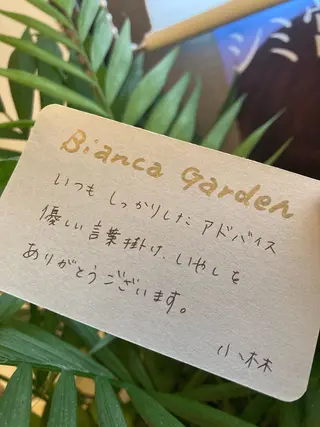 シミ
Bianca Garden
いつも しっかりした アドバイス
優しい言葉掛け、いやしを
ありがとうございます。
小林